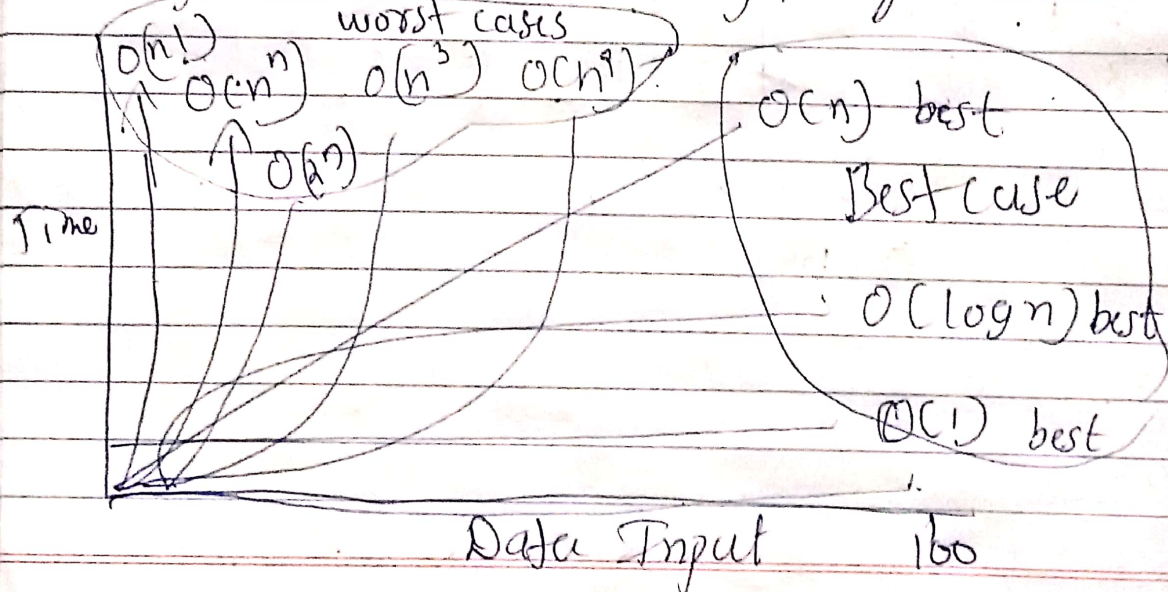 worst cases
O(n!) O(n^n) O(n^3) O(n^2)
O(n) best
O(2^n)
Best case
Time
O(log n) best
O(1) best
Data Input 100